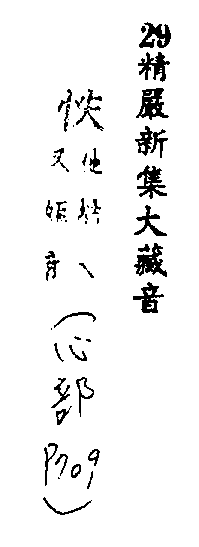 29精嚴新集大藏音
惔
他
又 音
(心部P709)